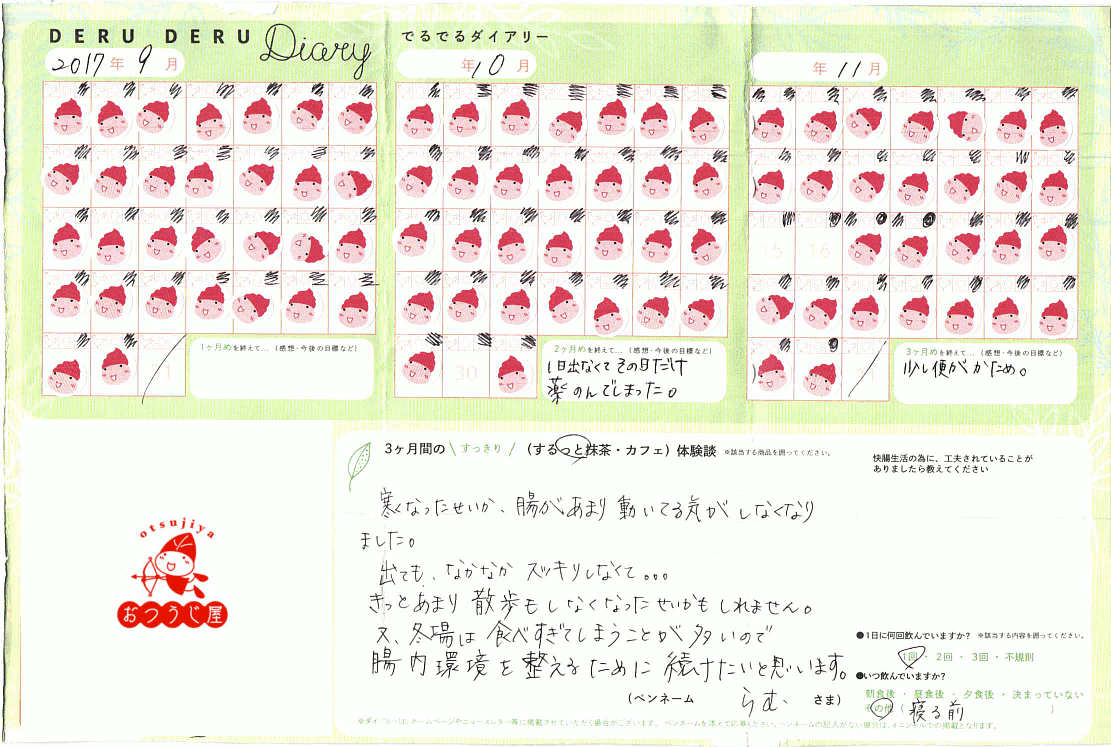 DERU DERU Diary でるでるダイアリー
2017年 9月
年10月
年11月
15 16
30
1ヶ月めを終えて…（感想・今後の目標など）
2ヶ月めを終えて…（感想・今後の目標など）
1日出なくてその日だけ
薬のんでしまった。
3ヶ月めを終えて…（感想・今後の目標など）
少し便がかため。
3ヶ月間の \ すっきり / （するっと抹茶・カフェ）体験談 ※該当する商品を囲ってください。
快腸生活の為に、工夫されていることが
ありましたら教えてください
寒くなったせいか、腸があまり動いてる気がしなくなり
ました。
出ても、なかなかスッキリしなくて。。。
きっとあまり散歩もしなくなったせいかもしれません。
又、冬場は食べすぎてしまうことが多いので
腸内環境を整えるために続けたいと思います。
（ペンネーム らむ、 さま）
otsujiya
おつうじ屋
●1日に何回飲んでいますか？ ※該当する内容を囲ってください。
1回・2回・3回・不規則
●いつ飲んでいますか？
朝食後・昼食後・夕食後・決まっていない
その他（寝る前）
※ダイアリーは、ホームページやニュースレター等に掲載させていただく場合がございます。ペンネームを添えて応募ください。ペンネームの記入がない場合は、イニシャルでの掲載となります。